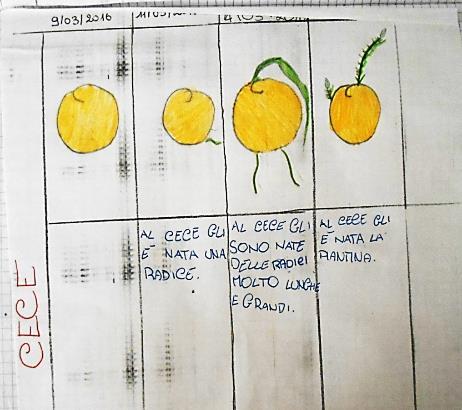 9/03/2016
CECE
AL CECE GLI
È NATA UNA
RADICE.
AL CECE GLI
SONO NATE
DELLE RADICI
MOLTO LUNGHE
E GRANDI.
AL CECE GLI
È NATA LA
PIANTINA.